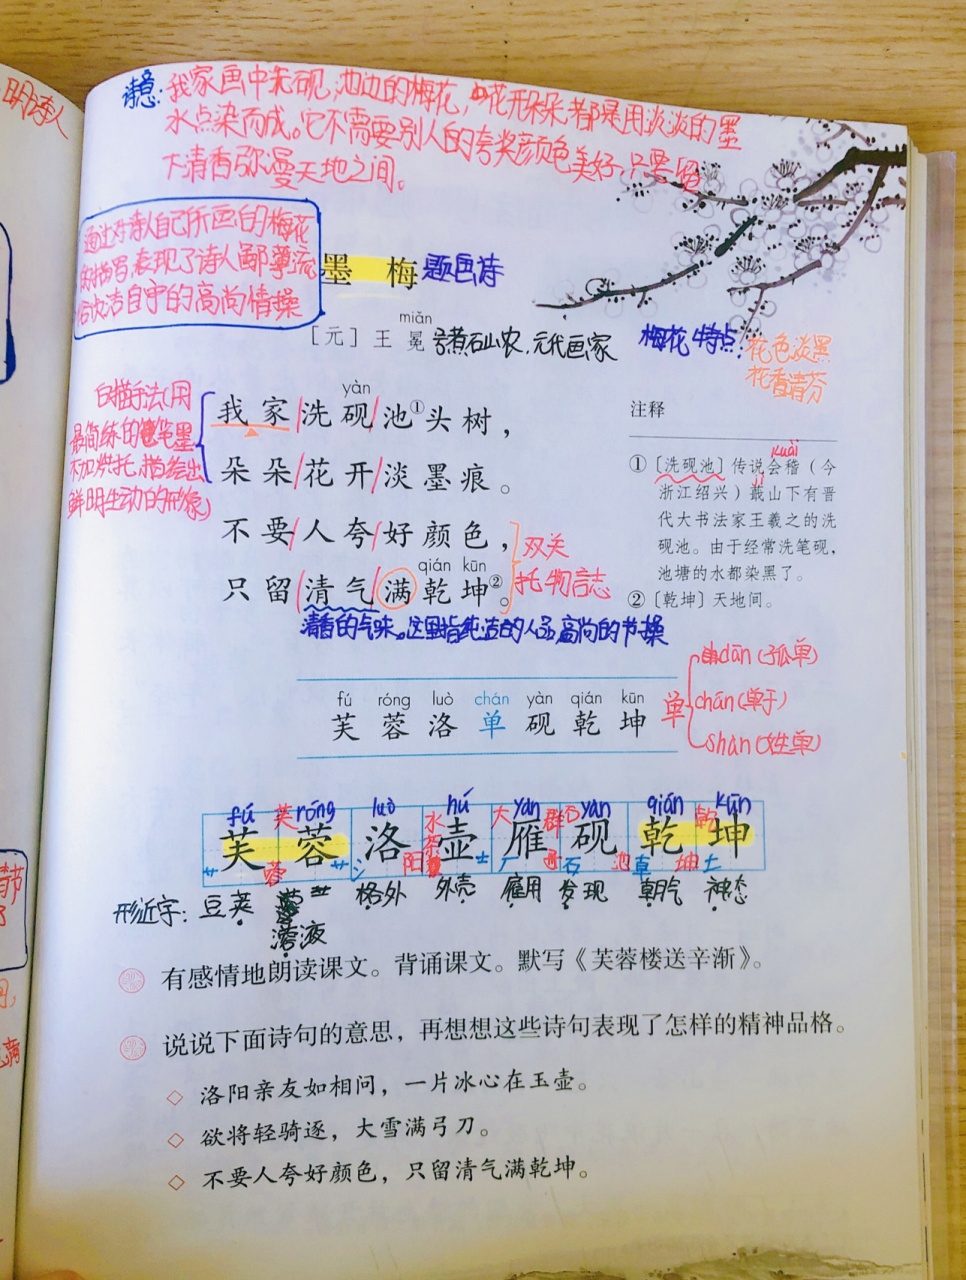 诗意:我家画中洗砚池边的梅花,中花开朵朵都是用淡淡的墨
水点染而成。它不需要别人的夸奖颜色美好,只要留
下清香弥漫天地之间。
明诗人
通过对诗人自己所画的梅花
的描写,表现了诗人鄙薄流
俗,洁自守的高尚情操
墨 梅 题画诗
miǎn
[元] 王 冕 号煮石山农,元代画家
梅花特点:花色淡黑
花香清芬
白描手法(用
最简练的笔墨
不加烘托,描绘出
鲜明生动的形象)
yàn
我家洗砚池①头树,
朵朵花开淡墨痕。
不要人夸好颜色,
qián kūn
只留清气满乾坤②。
双关
托物言志
清香的气味。这里指纯洁的人品高尚的节操
注释
kuài
①〔洗砚池〕传说会稽(今
浙江绍兴)蕺山下有晋
代大书法家王羲之的洗
砚池。由于经常洗笔砚,
池塘的水都染黑了。
②〔乾坤〕天地间。
fú róng luò chán yàn qián kūn
芙 蓉 洛 单 砚 乾 坤
单
dān(孤单)
chán(单于)
shàn(姓单)
fú róng luò hú yàn yàn qián kūn
芙 蓉 洛 壶 雁 砚 乾 坤
形近字: 豆荚 格外 外壳 雇用 发现 朝气 神态
溶液
有感情地朗读课文。背诵课文。默写《芙蓉楼送辛渐》。
说说下面诗句的意思,再想想这些诗句表现了怎样的精神品格。
◇ 洛阳亲友如相问,一片冰心在玉壶。
◇ 欲将轻骑逐,大雪满弓刀。
◇ 不要人夸好颜色,只留清气满乾坤。